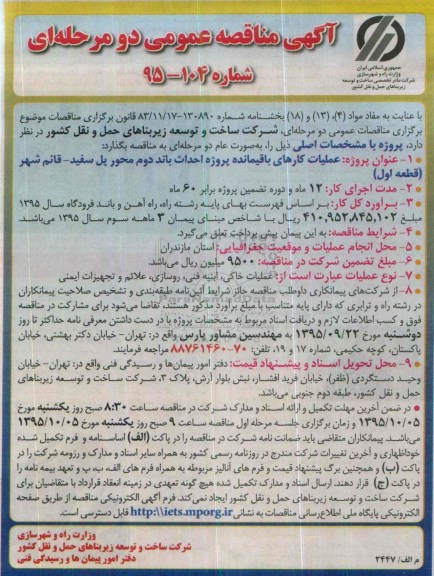 آگهی مناقصه عمومی دو مرحله‌ای
شماره ۱۰۴-۹۵
جمهوری اسلامی ایران
وزارت راه و شهرسازی
شرکت مادر تخصصی ساخت و توسعه
زیربناهای حمل و نقل کشور
با عنایت به مفاد مواد (۴)، (۱۳) و (۱۸) بخشنامه شماره ۱۳۰۸۹۰-۸۳/۱۱/۱۷ قانون برگزاری مناقصات موضوع
برگزاری مناقصات عمومی دو مرحله‌ای، شرکت ساخت و توسعه زیربناهای حمل و نقل کشور در نظر
دارد، پروژه با مشخصات اصلی ذیل را، به‌صورت عام دو مرحله‌ای به مناقصه بگذارد:
۱- عنوان پروژه: عملیات کارهای باقیمانده پروژه احداث باند دوم محور پل سفید- قائم شهر
(قطعه اول)
۲- مدت اجرای کار: ۱۲ ماه و دوره تضمین پروژه برابر ۶۰ ماه
۳- برآورد کل کار: بر اساس فهرست بهای پایه رشته راه، راه آهن و باند فرودگاه سال ۱۳۹۵
مبلغ ۴۱۰,۹۵۲,۸۴۵,۱۰۲ ریال با شاخص مبنای پیمان ۳ ماهه سوم سال ۱۳۹۵ می‌باشد.
۴- شرایط مناقصه: به این پیمان پیش پرداخت تعلق می‌گیرد.
۵- محل انجام عملیات و موقعیت جغرافیایی: استان مازندران
۶- مبلغ تضمین شرکت در مناقصه: ۹۵۰۰ میلیون ریال می‌باشد.
۷- نوع عملیات عبارت است از: عملیات خاکی، ابنیه فنی، روسازی، علائم و تجهیزات ایمنی
۸- از شرکت‌های پیمانکاری داوطلب مناقصه حائز شرایط آئین‌نامه طبقه‌بندی و تشخیص صلاحیت پیمانکاران
در رشته راه و ترابری که دارای پایه متناسب با مبلغ برآورد مذکور هستند، تقاضا می‌شود برای مشارکت در مناقصه
فوق و کسب اطلاعات لازم و دریافت اسناد مربوط به مشخصات پروژه با در دست داشتن معرفی نامه حداکثر تا روز
دوشنبه مورخ ۱۳۹۵/۰۹/۲۲ به مهندسین مشاور پارس واقع در: تهران- خیابان دکتر بهشتی، خیابان
پاکستان، کوچه حکیمی، شماره ۱۷ و ۱۹، تلفن: ۷۰-۸۸۷۶۱۴۶۰ مراجعه فرمایند.
۹- محل تحویل اسناد و پیشنهاد قیمت: دفتر امور پیمان‌ها و رسیدگی فنی واقع در: تهران- خیابان
وحید دستگردی (ظفر)، خیابان فرید افشار، نبش بلوار آرش، پلاک ۳، شرکت ساخت و توسعه زیربناهای
حمل و نقل کشور، طبقه دوم جنوبی می‌باشد.
در ضمن آخرین مهلت تکمیل و ارائه اسناد و مدارک شرکت در مناقصه ساعت ۸:۳۰ صبح روز یکشنبه مورخ
۱۳۹۵/۱۰/۰۵ و زمان برگزاری جلسه مرحله اول مناقصه ساعت ۹ صبح روز یکشنبه مورخ ۱۳۹۵/۱۰/۰۵
می‌باشد. پیمانکاران متقاضی باید ضمانت نامه شرکت در مناقصه را در پاکت (الف) اساسنامه و فرم تکمیل شده
خوداظهاری و آخرین تغییرات شرکت مندرج در روزنامه رسمی کشور به همراه سایر اسناد و مدارک و رزومه شرکت را در
پاکت (ب) و همچنین برگ پیشنهاد قیمت و فرم های آنالیز مربوطه به همراه فرم های الف، ب، پ و تعهد بیمه نامه را
در پاکت (ج) قرار دهند. ارسال اسناد و مدارک تکمیل شده هیچ گونه تعهدی در زمینه انعقاد قرارداد با متقاضیان برای
شرکت ساخت و توسعه زیربناهای حمل و نقل کشور ایجاد نمی‌کند. فرم آگهی الکترونیکی مناقصه از طریق صفحه
الکترونیکی پایگاه ملی اطلاع‌رسانی مناقصات به نشانی http:\\iets.mporg.ir قابل دسترسی است.
وزارت راه و شهرسازی
شرکت ساخت و توسعه زیربناهای حمل و نقل کشور
دفتر امور پیمان ها و رسیدگی فنی
م الف/ ۲۴۴۷